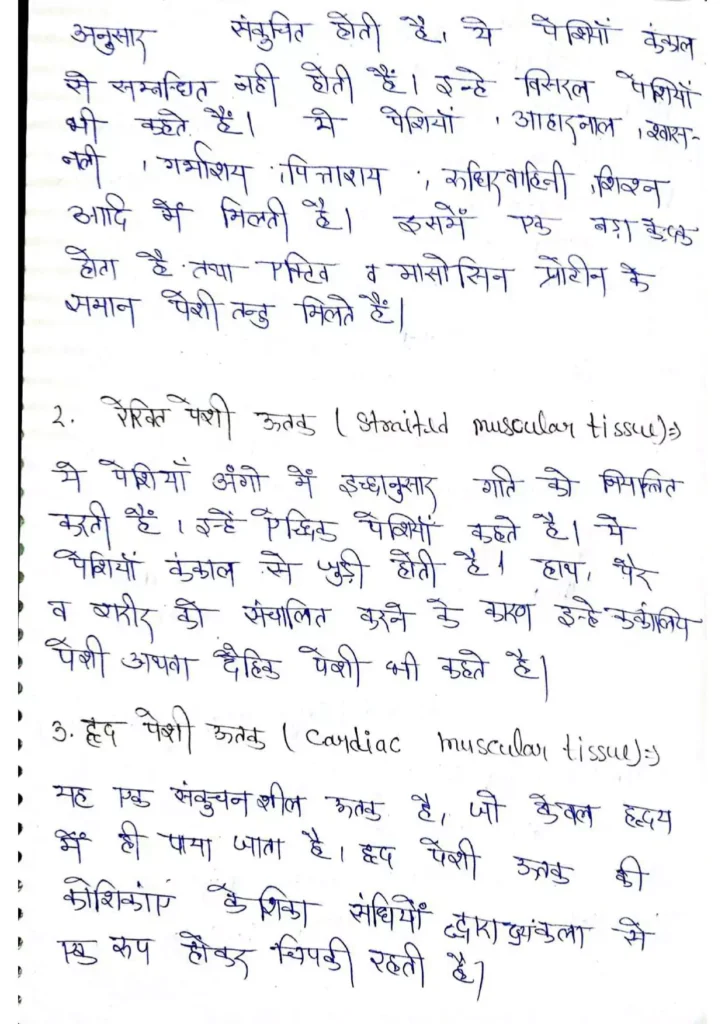 अनुसार संकुचित होती है, ये पेशियाँ कंकाल
से सम्बन्धित नही होती हैं। इन्हे विसरल पेशियाँ
भी कहते हैं। ये पेशियाँ, आहारनाल, श्वास-
नली, गर्भाशय, पित्ताशय, रुधिरवाहिनी, शिश्न
आदि में मिलती है। इसमें एक बड़ा केन्द्रक
होता है तथा एक्टिन व मायोसिन प्रोटीन के
समान पेशी तन्तु मिलते हैं।
2. रेखित पेशी ऊतक (Straited muscular tissue)⇒
ये पेशियाँ अंगो में इच्छानुसार गति को नियंत्रित
करती हैं। इन्हें ऐच्छिक पेशियाँ कहते है। ये
पेशियाँ कंकाल से जुड़ी होती है। हाथ, पैर
व शरीर को संचालित करने के कारण इन्हे कंकालिय
पेशी अथवा दैहिक पेशी भी कहते है।
3. हृद पेशी ऊतक (Cardiac muscular tissue)⇒
यह एक संकुचनशील ऊतक है, जो केवल हृदय
में ही पाया जाता है। हृद पेशी ऊतक की
कोशिकाएं कोशिका संधियों द्वारा से
एक रूप होकर चिपकी रहती है।